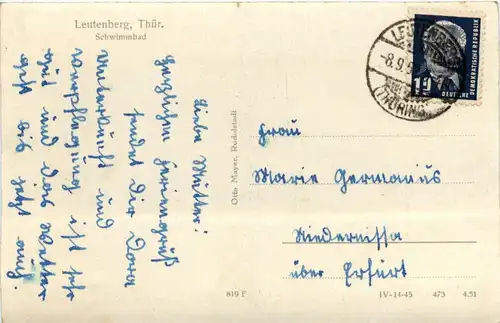 Leutenberg, Thür.
Schwimmbad
Liebe Mutter!
Herzlichen Feriengruß
sendet Dir Dora
Unterkunft und
Verpflegung ist sehr
gut und das Wetter
geht bis jetzt
auch.
Otto Mayer, Rudolstadt
LEUTENBERG
-8.9.5
(THÜRING
12
DEUTSCHE
DEMOKRATISCHE REPUBLIK
Frau
Marie Germanus
Niedernissa
über Erfurt
819 F
IV-14-45 473 4.51